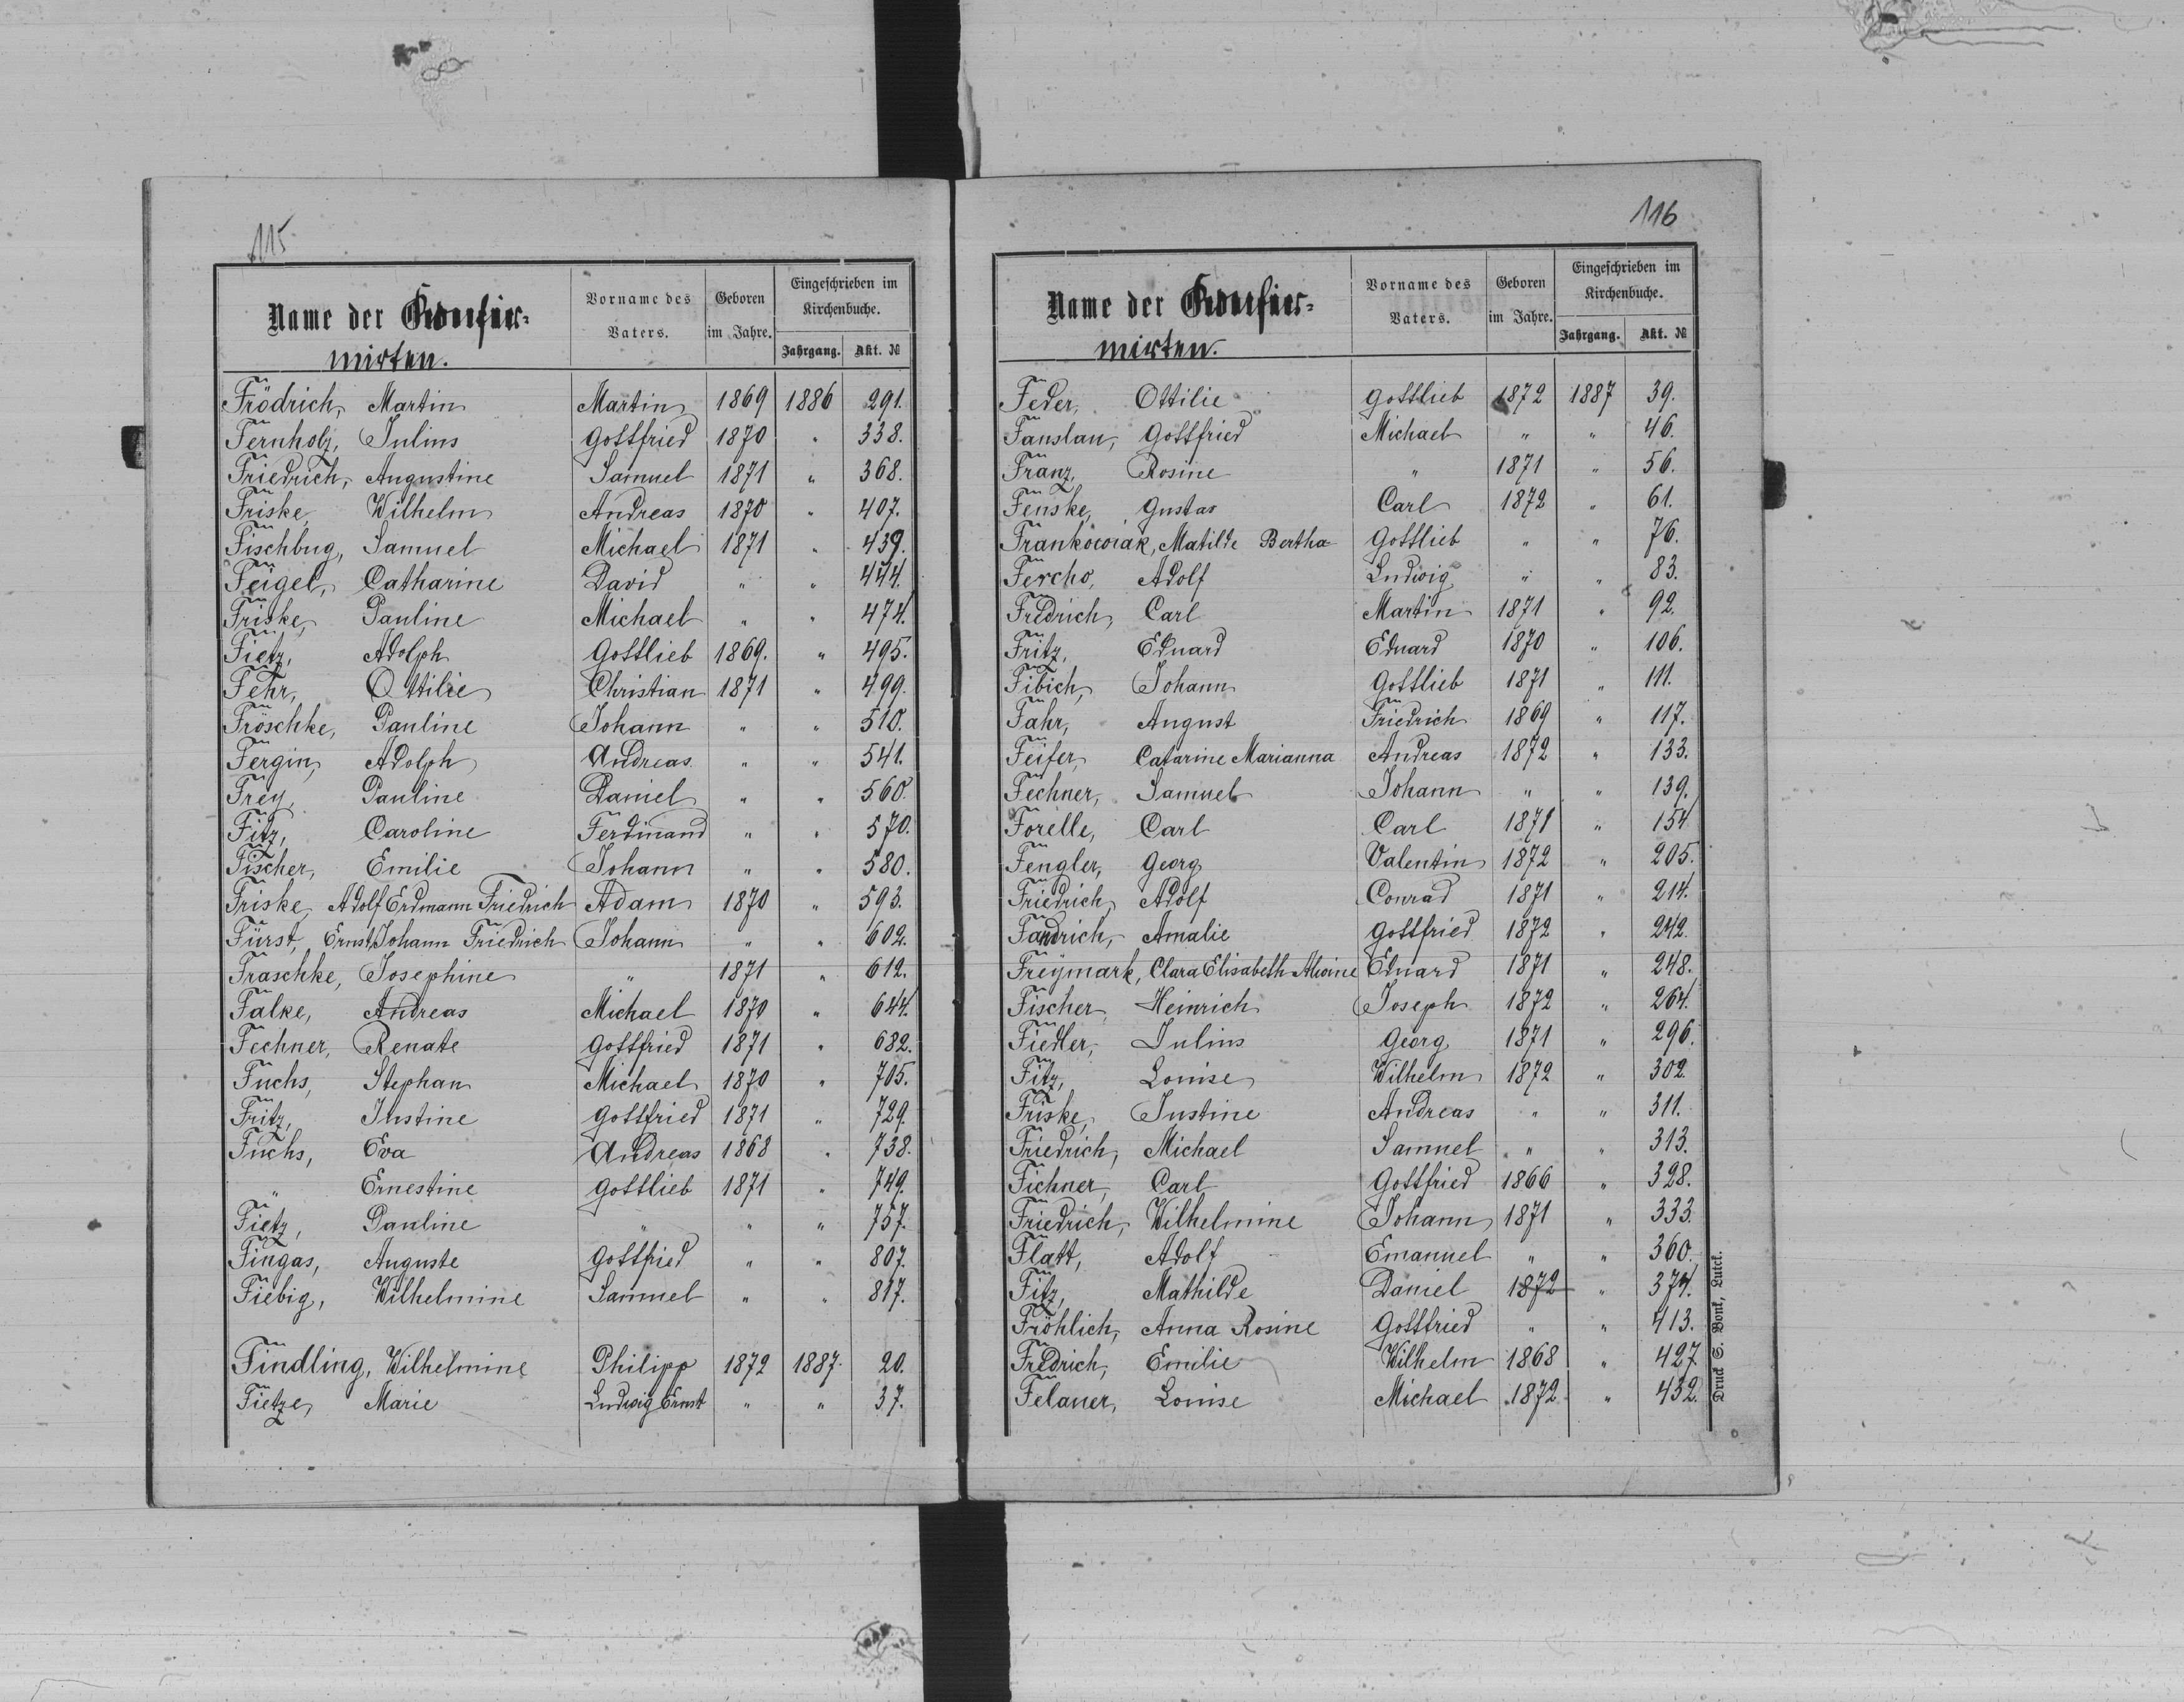 115
Name der Konfir-
mirten.
Vorname des Vaters.
Geboren im Jahre.
Eingeschrieben im Kirchenbuche.
Jahrgang. Akt. №
Frödrich, Martin Martin 1869 1886 291.
Fernholz, Julius Gottfried 1870 " 338.
Friedrich, Augustine Samuel 1871 " 368.
Friske, Wilhelm Andreas 1870 " 407.
Fischbug, Samuel Michael 1871 " 439.
Feigel, Catharine David " " 444.
Friske, Pauline Michael " " 474.
Fietz, Adolph Gottlieb 1869. " 495.
Fehr, Ottilie Christian 1871 " 499.
Fröschke, Pauline Johann " " 510.
Fergin, Adolph Andreas " " 541.
Frey, Pauline Daniel " " 560.
Fitz, Caroline Ferdinand " " 570.
Fischer, Emilie Johann " " 580.
Friske, Adolf Erdmann Friedrich Adam 1870 " 593.
Fürst, Ernst Johann Friedrich Johann " " 602.
Fraschke, Josephine " 1871 " 612.
Falke, Andreas Michael 1870 " 644.
Fechner, Renate Gottfried 1871 " 682.
Fuchs, Stephan Michael 1870 " 705.
Fritz, Justine Gottfried 1871 " 729.
Fuchs, Eva Andreas 1868 " 738.
" Ernestine Gottlieb 1871 " 749.
Fietz, Pauline " " " 757.
Fingas, Auguste Gottfried " " 807.
Fiebig, Wilhelmine Samuel " " 817.
Findling, Wilhelmine Philipp 1872 1887. 20.
Fietze, Marie Ludwig Ernst " " 37.
116
Name der Konfir-
mirten.
Vorname des Vaters.
Geboren im Jahre.
Eingeschrieben im Kirchenbuche.
Jahrgang. Akt. №
Feder, Ottilie Gottlieb 1872 1887 39.
Fanslau, Gottfried Michael " " 46.
Franz, Rosine " 1871 " 56.
Fenske, Gustav Carl 1872 " 61.
Frankowiak, Matilde Bertha Gottlieb " " 76.
Fercho, Adolf Ludwig " " 83.
Fredrich, Carl Martin 1871 " 92.
Fritz, Eduard Eduard 1870 " 106.
Fibich, Johann Gottlieb 1871 " 111.
Fahr, August Friedrich 1869 " 117.
Feifer, Catarine Marianna Andreas 1872 " 133.
Fechner, Samuel Johann " " 139.
Forelle, Carl Carl 1871 " 154.
Fengler, Georg Valentin 1872 " 205.
Friedrich, Adolf Conrad 1871 " 214.
Fandrich, Amalie Gottfried 1872 " 242.
Freymark, Clara Elisabeth Alwine Eduard 1871 " 248.
Fischer, Heinrich Joseph 1872 " 264.
Fiedler, Julius Georg 1871 " 296.
Fitz, Louise Wilhelm 1872 " 302.
Friske, Justine Andreas " " 311.
Friedrich, Michael Samuel " " 313.
Fichner, Carl Gottfried 1866 " 328.
Friedrich, Wilhelmine Johann 1871 " 333.
Flatt, Adolf Emanuel " " 360.
Fitz, Mathilde Daniel 1872 " 374.
Fröhlich, Anna Rosine Gottfried " " 413.
Fredrich, Emilie Wilhelm 1868 " 427
Felauer, Louise Michael 1872 " 432.
Druck S. Bonk, Lutck.